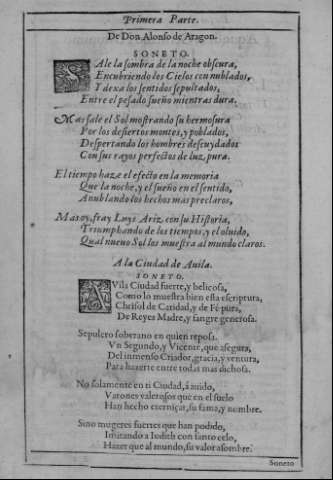 Primera Parte.
De Don Alonso de Aragon.
SONETO.
SAle la sombra de la noche obscura,
Encubriendo los Cielos con nublados,
Y dexa los sentidos sepultados,
Entre el pesado sueño mientras dura.
Mas sale el Sol mostrando su hermosura
Por los desiertos montes, y poblados,
Despertando los hombres descuydados
Con sus rayos perfectos de luz pura.
El tiempo haze el efecto en la memoria
Que la noche, y el sueño en el sentido,
Anublando los hechos mas preclaros,
Mas oy, fray Luys Ariz con su Historia,
Triumphando de los tiempos, y el oluido,
Qual nueuo Sol los muestra al mundo claros.
A la Ciudad de Auila.
SONETO.
AVila Ciudad fuerte, y belicosa,
Como lo muestra bien esta escriptura,
Chrisol de Caridad, y de Fè pura,
De Reyes Madre, y sangre generosa.
Sepulcro soberano en quien reposa
Vn Segundo, y Vicente, que assegura,
Del inmenso Criador, gracia, y ventura,
Para hazerte entre todas mas dichosa.
No solamente en ti Ciudad, à auido,
Varones valerosos que en el suelo
Han hecho eternizar, su fama, y nombre.
Sino mugeres fuertes que han podido,
Imitando a Iudith con santo celo,
Hazer que al mundo, su valor asombre.
Soneto